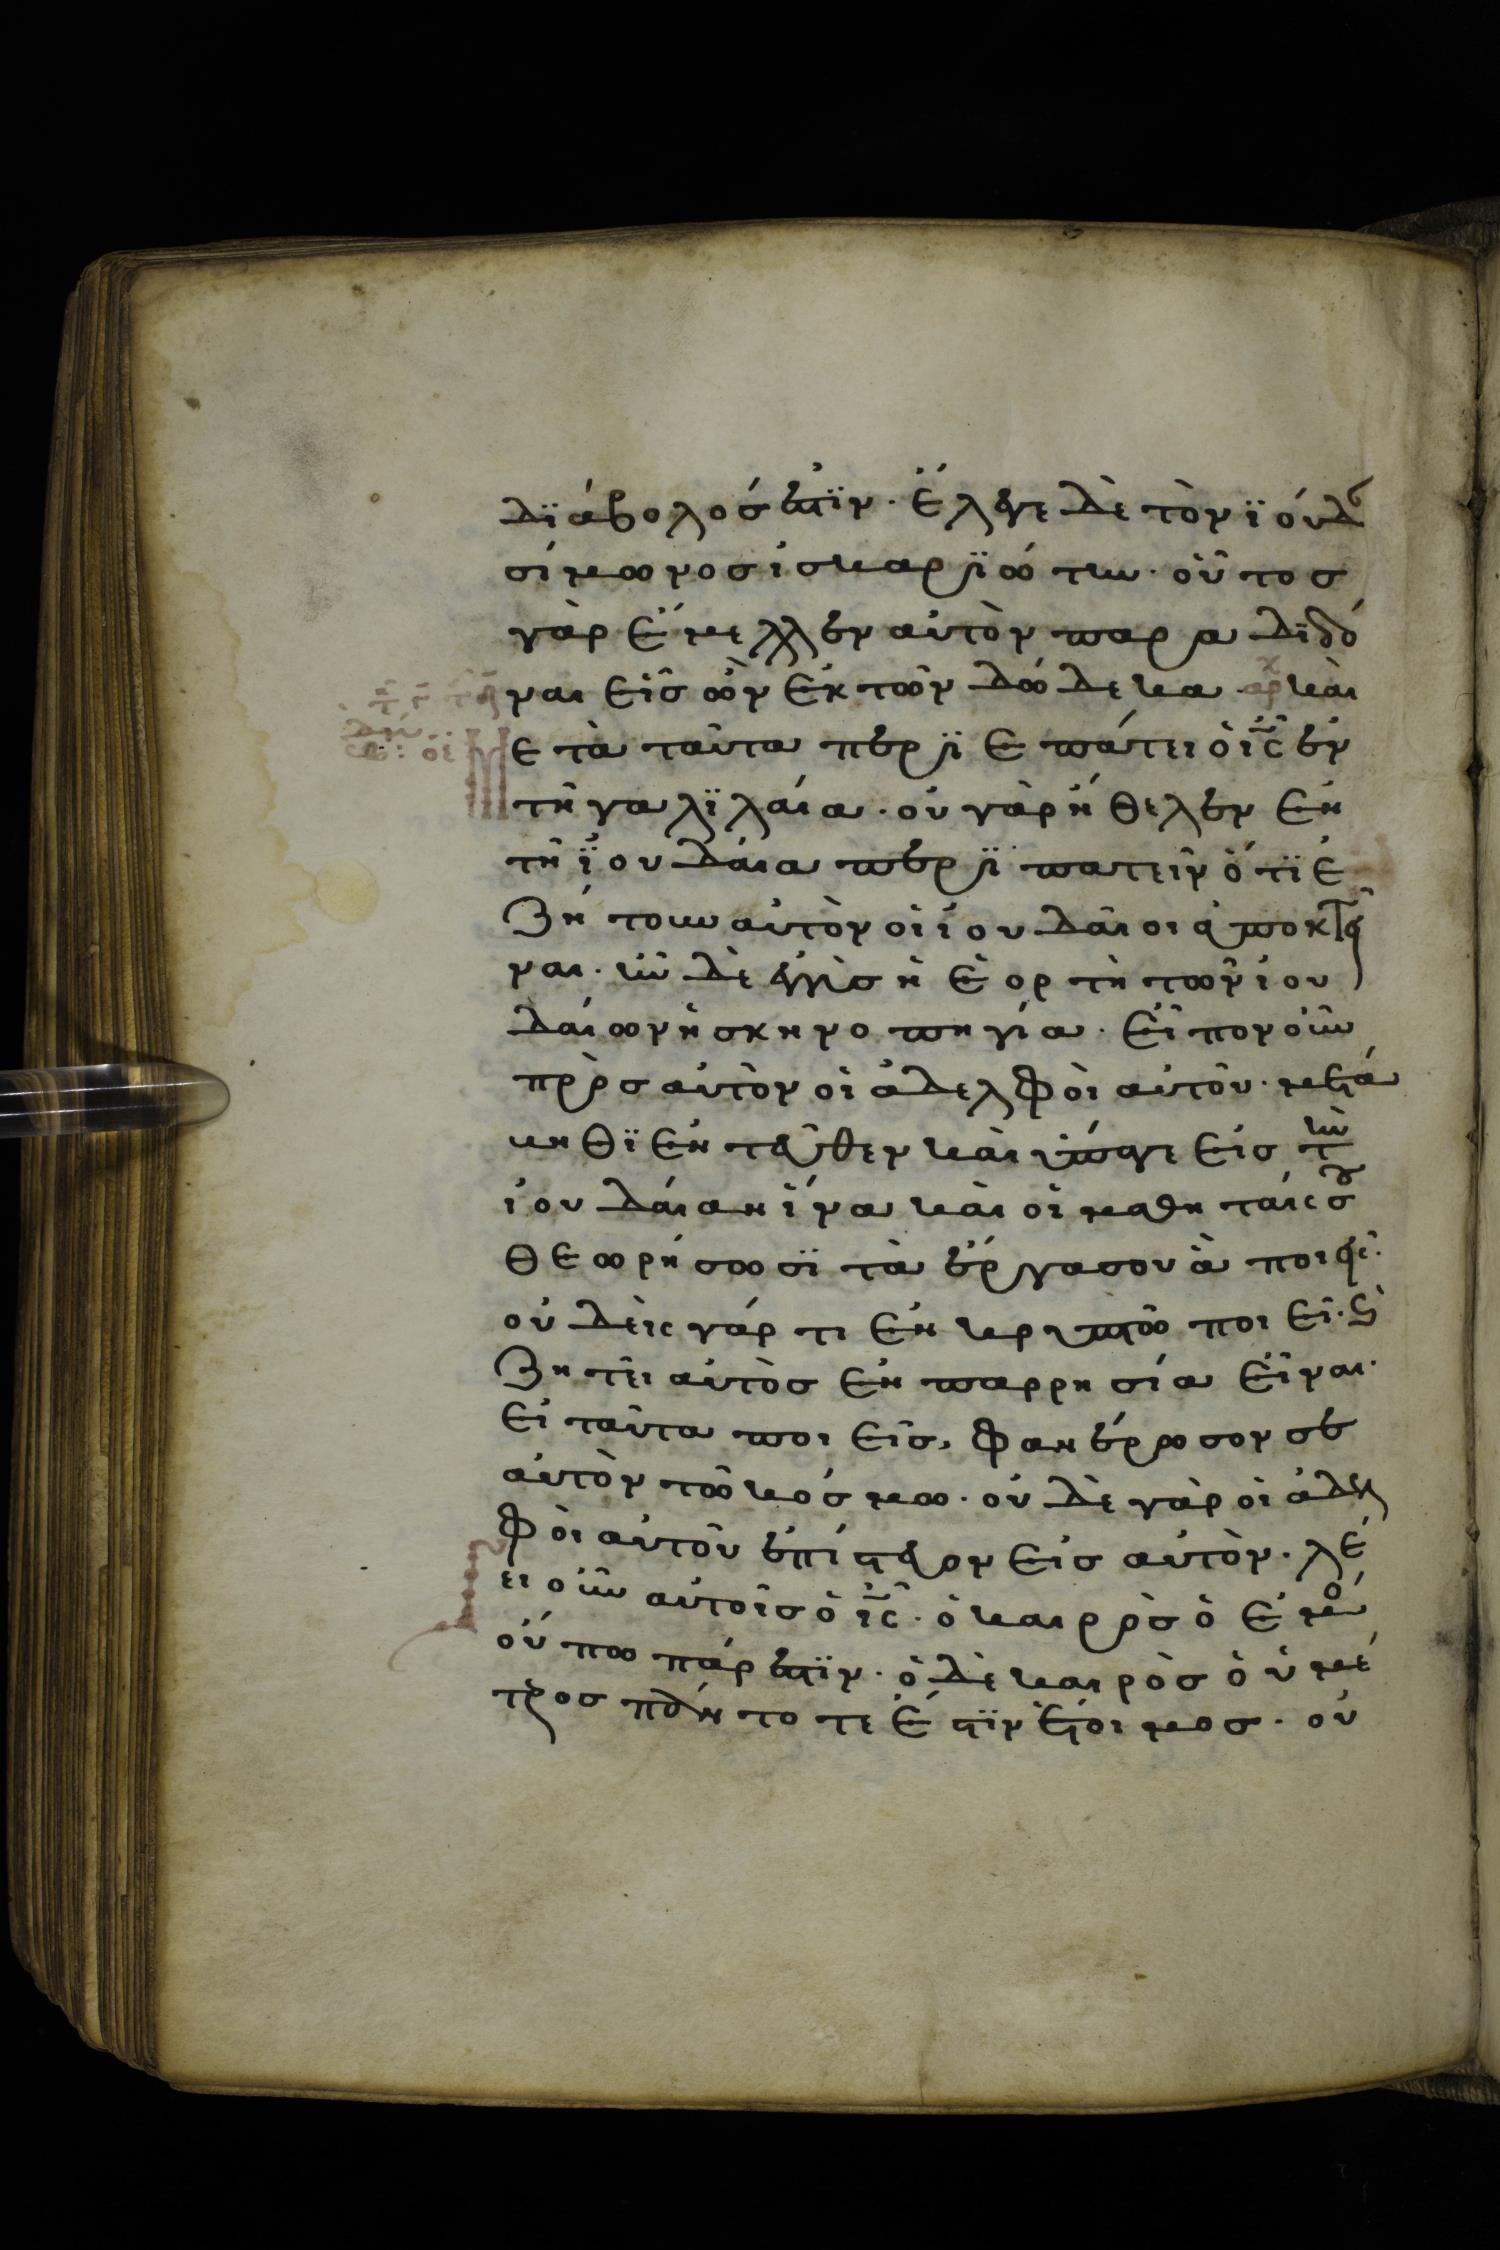 διάβολός ἐστϊν· ἔλεγε δὲ τὸν ϊούδ
σίμωνος ἰσκαρϊώτην· οὗτος
γὰρ ἔμελλεν αὐτὸν παραδϊδό
ναι εἷς ὢν ἐκ τῶν δώδεκα αρχ καὶ
Μετὰ ταῦτα περϊεπάτει ὁ ις ἐν
τῆ γαλϊλαία· οὐ γὰρ ἤθελεν ἐν
τῆ ϊουδαία περϊπατεῖν ὅτϊ ἐ
ζήτουν αὐτὸν οἱ ἰουδαῖοι ἀποκτεῖ
ναι· ἦν δὲ ἐγγὺς ἡ ἑορτὴ τῶν ἰου
δαίων ἡ σκηνοπηγία· εἶπον οὖν
πρὸς αὐτὸν οἱ ἀδελφοὶ αὐτοῦ· μετά
βηθϊ ἐντεῦθεν καὶ ὕπαγε εἰς τὴν
ἰουδαίαν ἵνα καὶ οἱ μαθηταί σου
θεωρήσωσϊ τὰ ἔργα σου ἃ ποιεῖς·
οὐδεὶς γάρ τι ἐν κρυπτῶ ποιεῖ· καὶ
ζητεῖ αὐτὸς ἐν παρρησία εἶναι·
εἰ ταῦτα ποιεῖς, φανέρωσον σε
αὐτὸν τῶ κόσμω· οὐδὲ γὰρ οἱ ἀδελ
φοὶ αὐτοῦ ἐπίστευον εἰς αὐτὸν· λέ
γει οὖν αὐτοῖς ὁ ις· ὁ καιρὸς ὁ ἐμὸ
οὔπω πάρεστϊν· ὁ δὲ καιρὸς ὁ ὑμέ
τερος πάντοτε ἐστϊν ἕτοιμος· οὐ